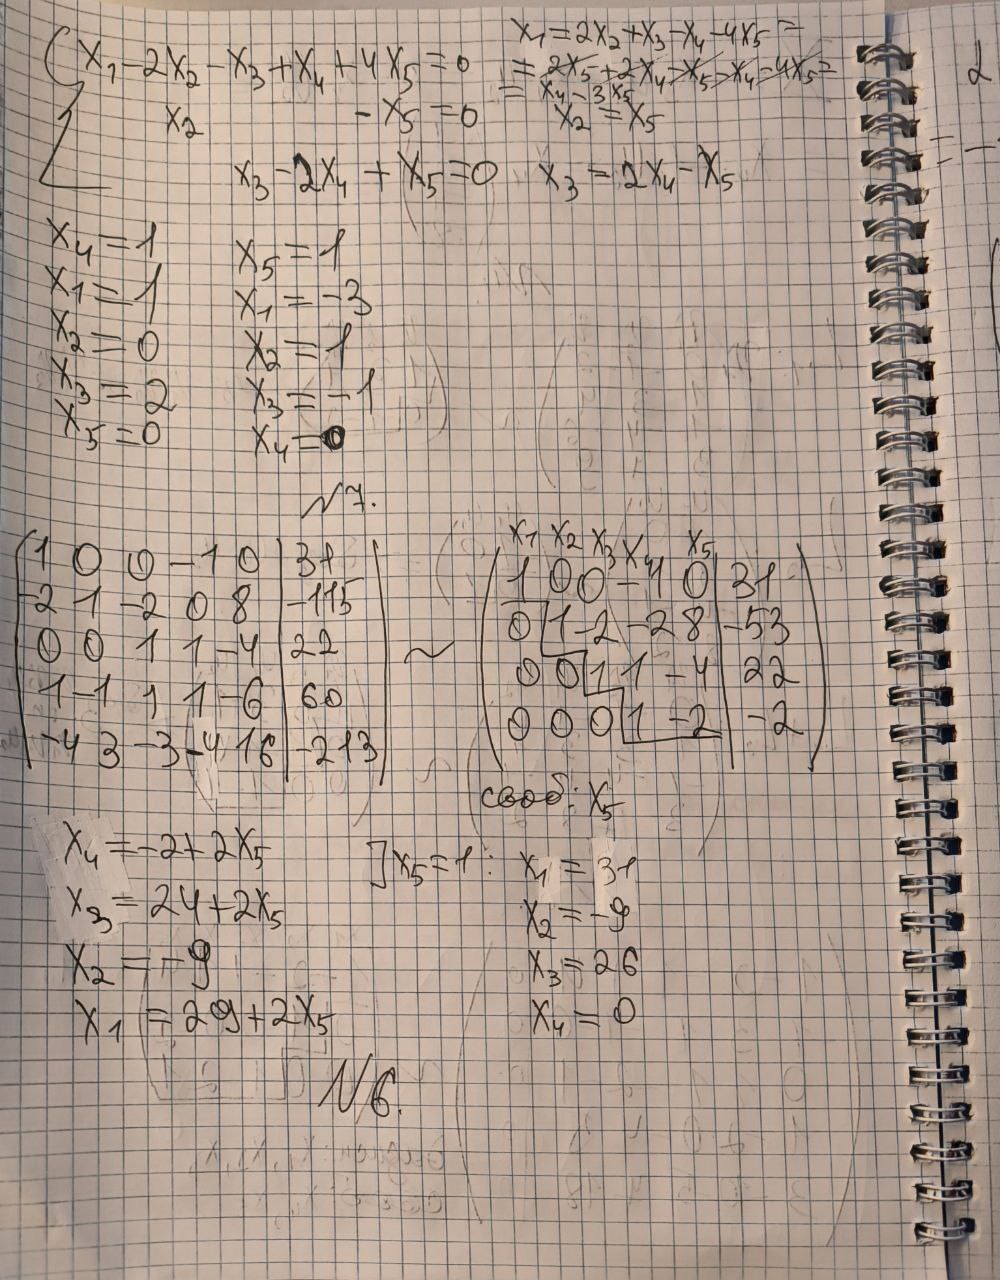 x₁ - 2x₂ - x₃ + x₄ + 4x₅ = 0
x₂ - x₅ = 0
x₃ - 2x₄ + x₅ = 0
x₁ = 2x₂ + x₃ - x₄ - 4x₅ =
= 2x₅ + 2x₄ - x₅ - x₄ - 4x₅ =
= x₄ - 3x₅
x₂ = x₅
x₃ = 2x₄ - x₅
x₄ = 1
x₁ = 1
x₂ = 0
x₃ = 2
x₅ = 0
x₅ = 1
x₁ = -3
x₂ = 1
x₃ = -1
x₄ = 0
N7.
1 0 0 -1 0 | 31
-2 1 -2 0 8 | -115
0 0 1 1 -4 | 22
1 -1 1 1 -6 | 60
-4 3 -3 -4 16 | -213
~
x₁ x₂ x₃ x₄ x₅
1 0 0 -1 0 | 31
0 1 -2 -2 8 | -53
0 0 1 1 -4 | 22
0 0 0 1 -2 | -2
своб: x₅
x₄ = -2 + 2x₅
x₃ = 24 + 2x₅
x₂ = -9
x₁ = 29 + 2x₅
] x₅ = 1 :
x₁ = 31
x₂ = -9
x₃ = 26
x₄ = 0
N6.